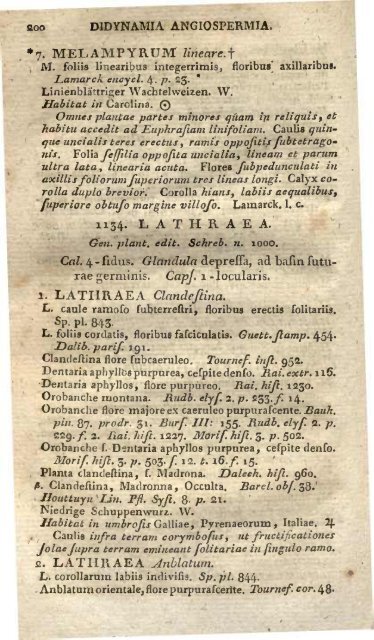 200 DIDYNAMIA ANGIOSPERMIA.
*7. MELAMPYRUM lineare.†
M. foliis linearibus integerrimis, floribus axillaribus.
Lamarck encycl. 4. p. 23. *
Linienblättriger Wachtelweizen. W.
Habitat in Carolina. ☉
Omnes plantae partes minores quam in reliquis, et
habitu accedit ad Euphraſiam linifoliam. Caulis quin-
que uncialis teres erectus, ramis oppoſitis ſubtetrago-
nis. Folia ſeſſilia oppoſita uncialia, lineam et parum
ultra lata, linearia acuta. Flores ſubpedunculati in
axillis foliorum ſuperiorum tres lineas longi. Calyx co-
rolla duplo brevior. Corolla hians, labiis aequalibus,
ſuperiore obtuſo margine villoſo. Lamarck. l. c.
1134. LATHRAEA.
Gen. plant. edit. Schreb. n. 1000.
Cal. 4-fidus. Glandula depreſſa, ad baſin ſutu-
rae germinis. Capſ. 1-locularis.
1. LATHRAEA Clandeſtina.
L. caule ramoſo ſubterreſtri, floribus erectis ſolitariis.
Sp. pl. 843.
L. foliis cordatis, floribus faſciculatis. Guett. ſtamp. 454.
Dalib. pariſ. 191.
Clandeſtina flore ſubcaeruleo. Tournef. inſt. 952.
Dentaria aphyllos purpurea, ceſpite denſo. Rai. extr. 116.
Dentaria aphyllos, flore purpureo. Rai. hiſt. 1230.
Orobanche montana. Rudb. elyſ. 2. p. 233. f. 14.
Orobanche flore majore ex caeruleo purpuraſcente. Bauh.
pin. 87. prodr. 31. Burſ. III: 155. Rudb. elyſ. 2. p.
229. f. 2. Rai. hiſt. 1227. Moriſ. hiſt. 3. p. 502.
Orobanche ſ. Dentaria aphyllos purpurea, ceſpite denſo.
Moriſ. hiſt. 3. p. 503. ſ. 12. t. 16. f. 15.
Planta clandeſtina, ſ. Madrona. Dalech. hiſt. 960.
β. Clandeſtina, Madronna, Occulta. Barel. obſ. 38.
Houttuyn Lin. Pfl. Syſt. 8. p. 21.
Niedrige Schuppenwurz. W.
Habitat in umbroſis Galliae, Pyrenaeorum, Italiae. ♃
Caulis infra terram corymboſus, ut fructificationes
ſolae ſupra terram emineant ſolitariae in ſingulo ramo.
2. LATHRAEA Anblatum.
L. corollarum labiis indiviſis. Sp. pl. 844.
Anblatum orientale, flore purpuraſcente. Tournef. cor. 48.